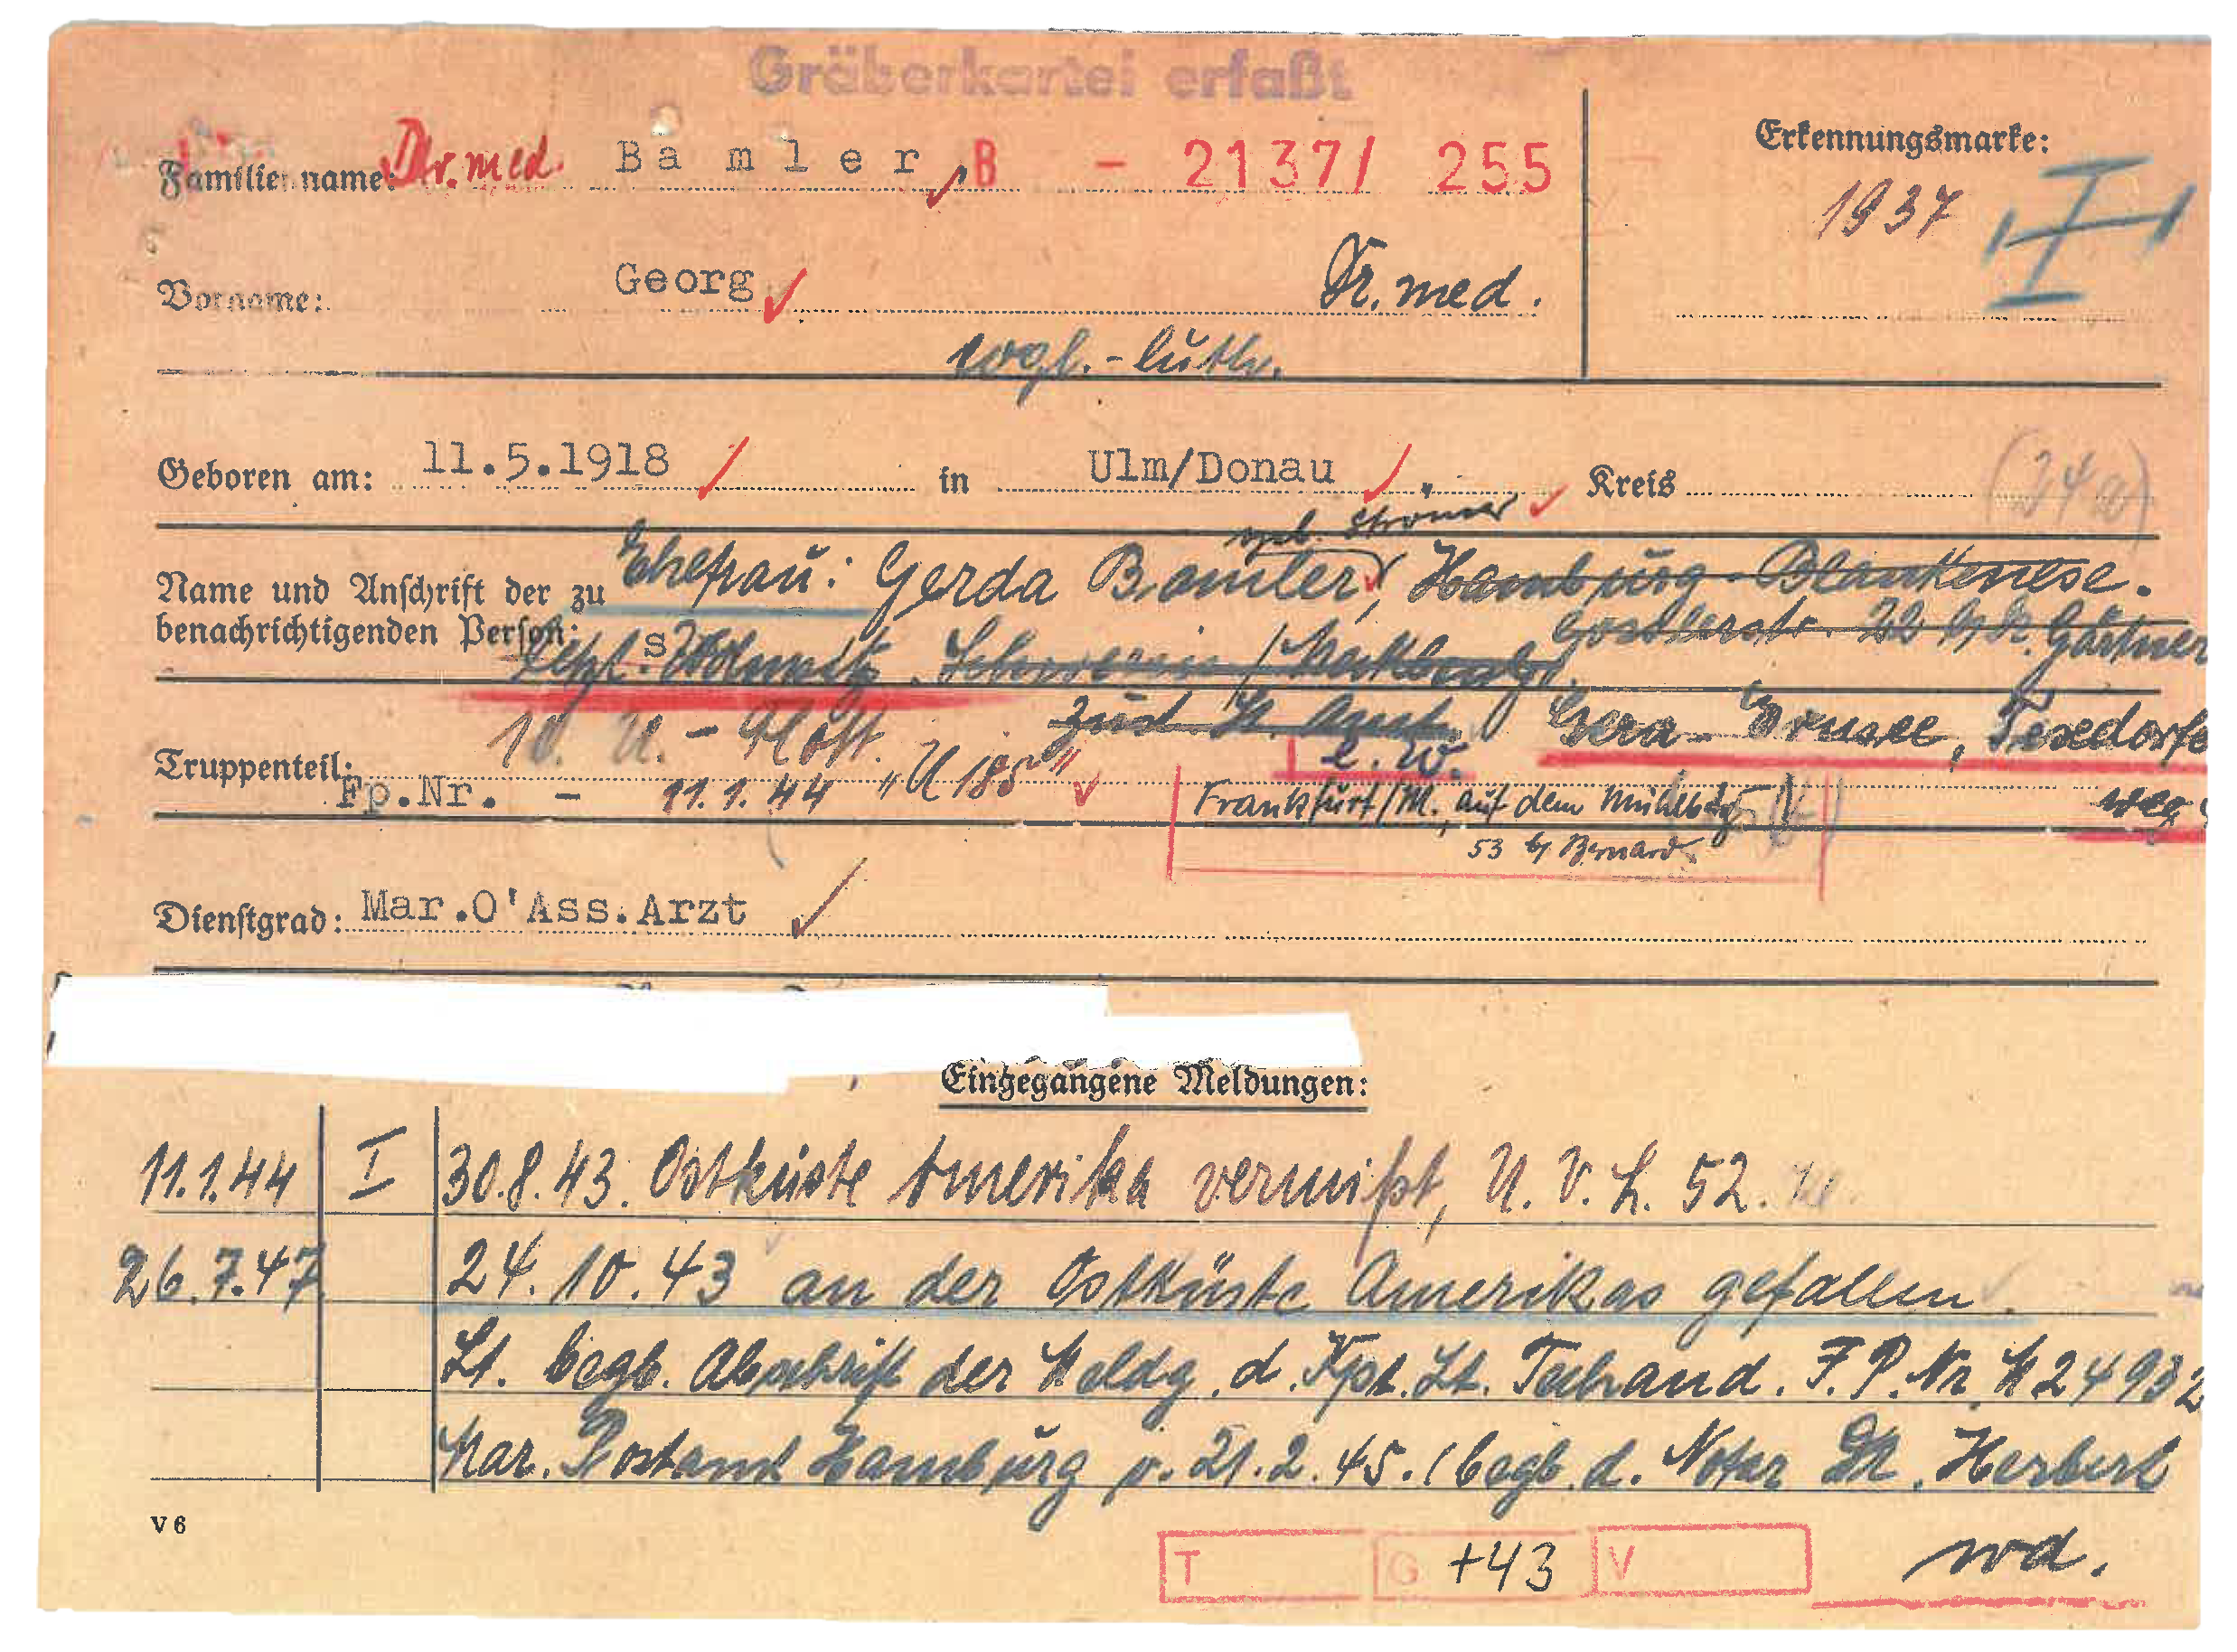 Gräberkartei erfaßt
Familienname: Dr. med. Bamler B - 2137/ 255
Erkennungsmarke:
1937 I
Vorname: Georg Dr. med.
evgl.-luth.
Geboren am: 11.5.1918 in Ulm/Donau Kreis
geb.
Name und Anschrift der zu Ehefrau: Gerda Bamler, Hamburg-Blankenese.
benachrichtigenden Person: 22 b/ Dr. Gärtner
Gera
10. U.-Flott.
Truppenteil: "U 185"
Fp.Nr. - 11.1.44
Frankfurt/M., auf dem Mühlberg
weg
53 b/ Bernard
Dienstgrad: Mar.O'Ass.Arzt
Eingegangene Meldungen:
11.1.44 I 30.8.43. Ostküste Amerika vermißt, U. V. L. 52.
26.7.47 24.10.43 an der Ostküste Amerikas gefallen.
Lt. begl. Abschrift der Meldg. d. Kpt. Lt. F.P.Nr. M 24932
Mar. Postamt Hamburg v. 21.2.45. (begl. d. Notar Dr. Herbert
V 6
T G +43 V
wd.